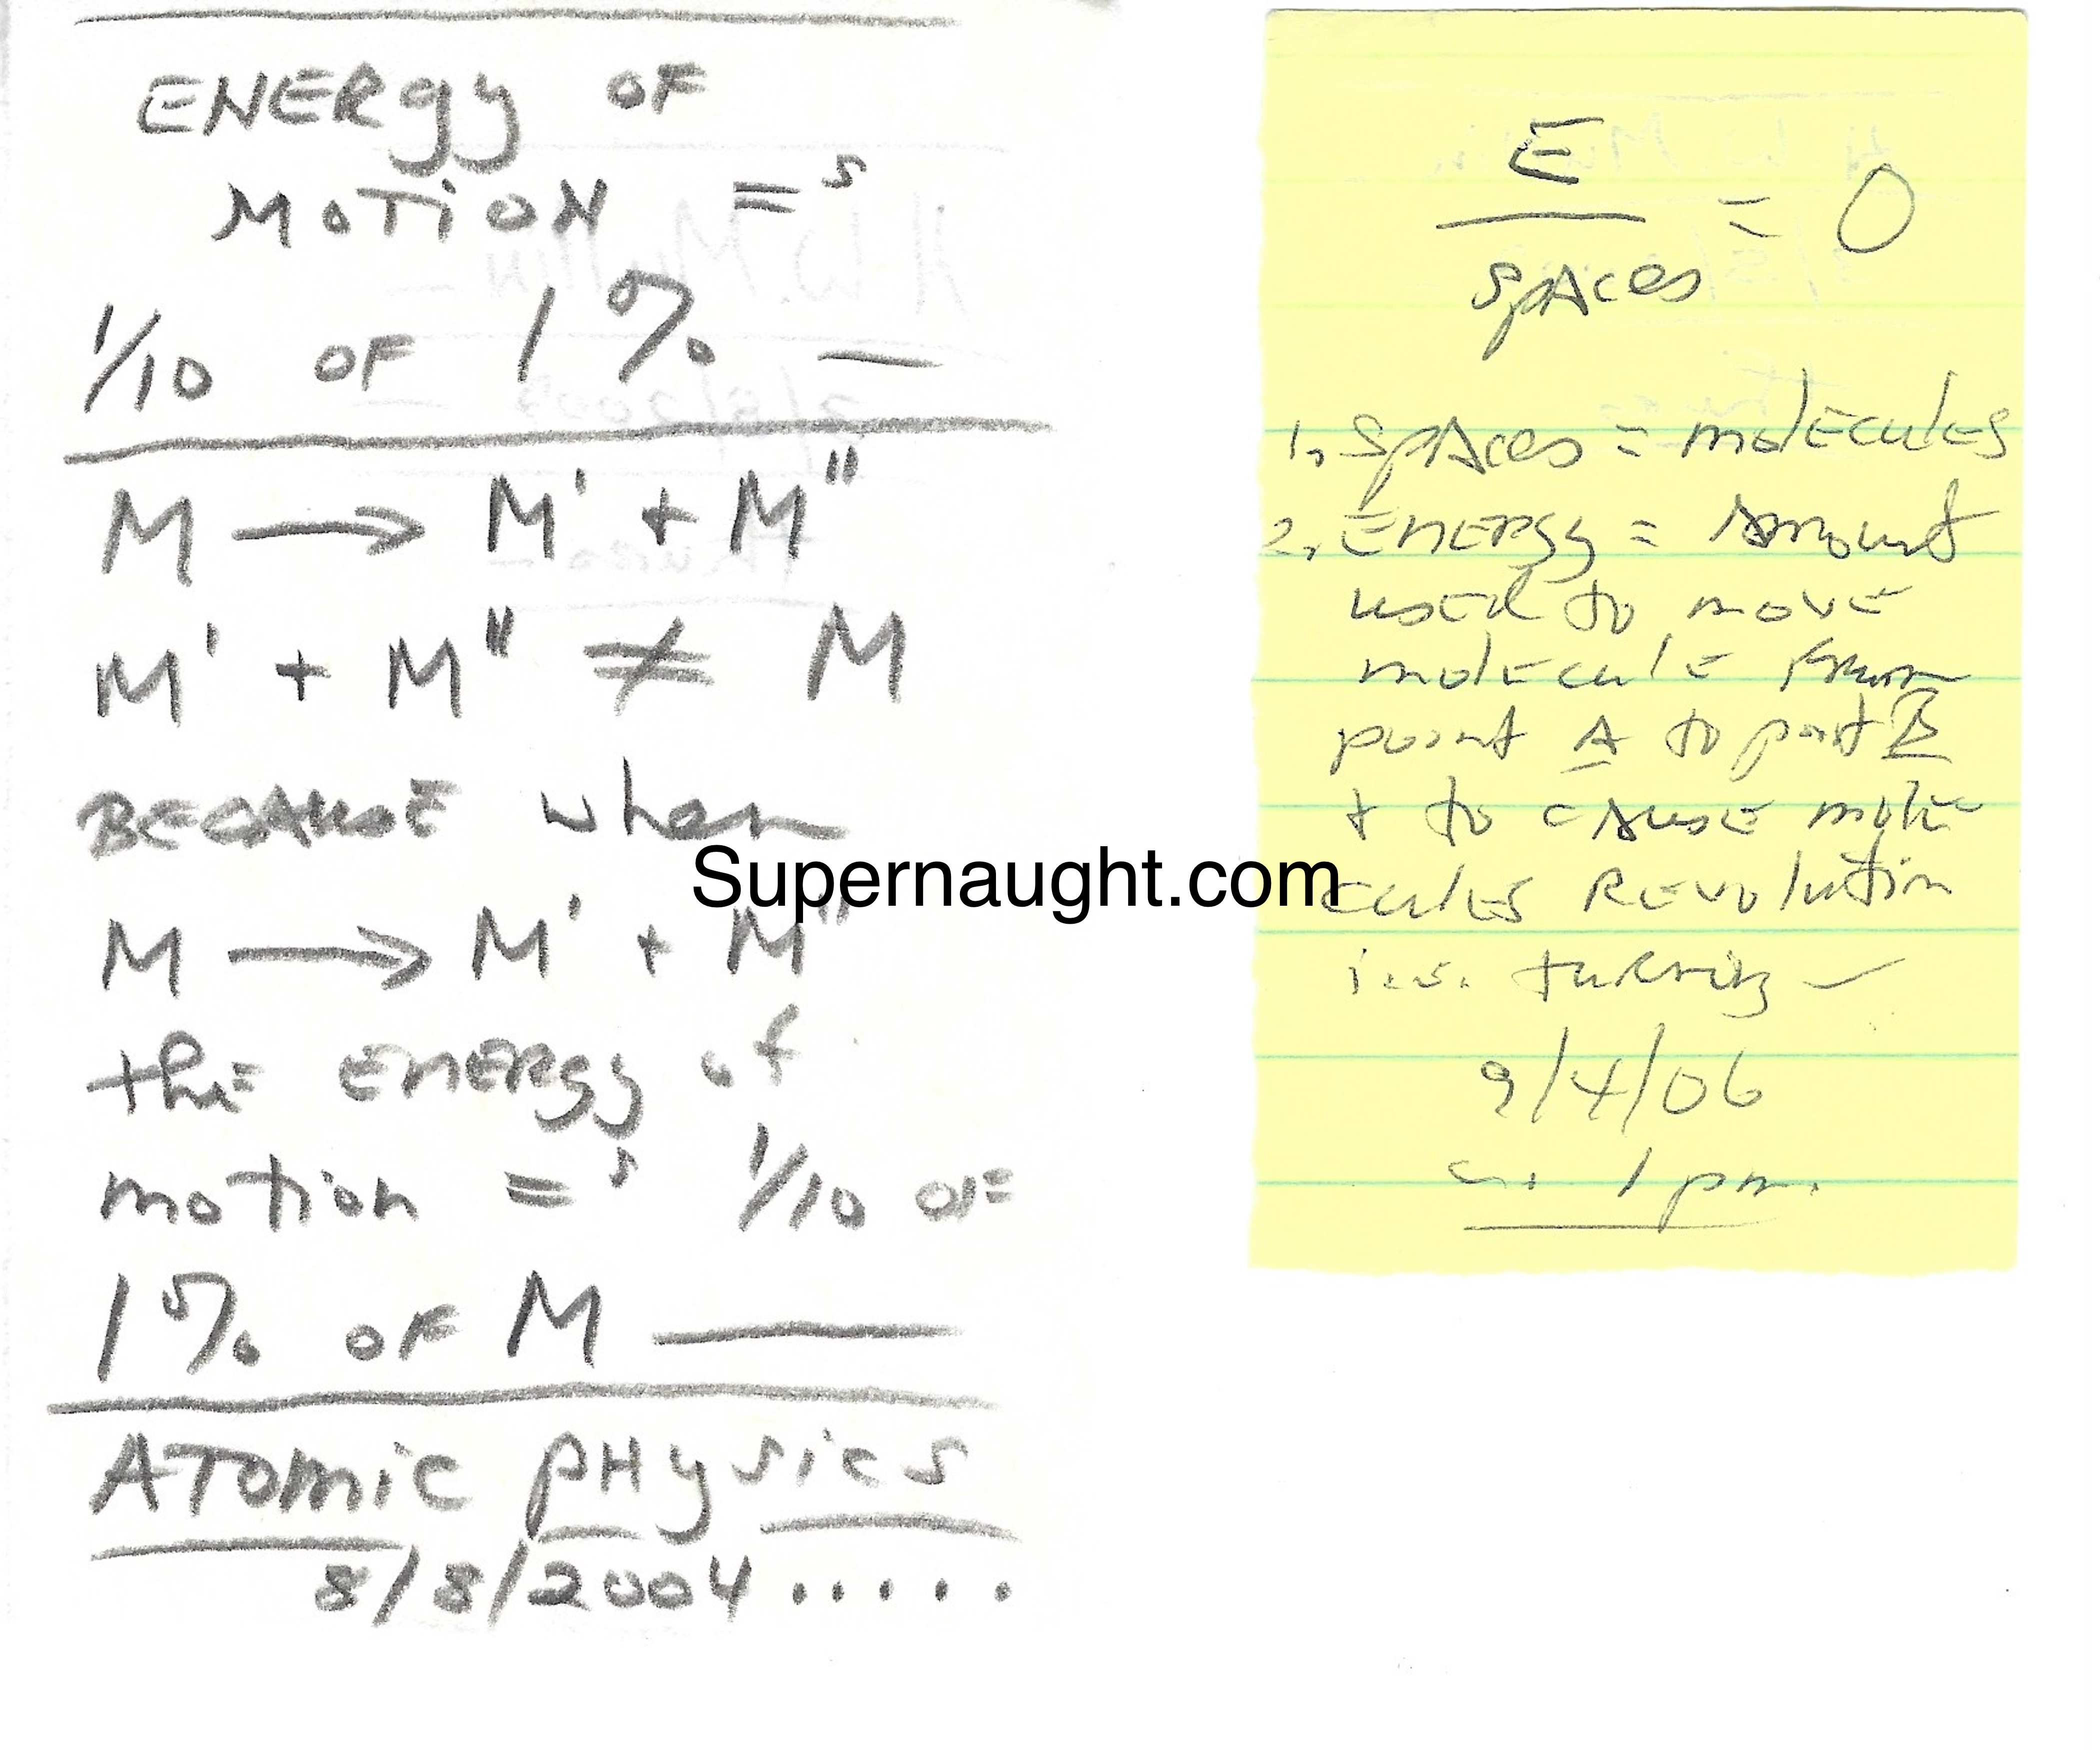 ENERgy OF
MOTION =s
1/10 OF 1% —
M → M' + M"
M' + M" ≠ M
BECAUSE when
M → M' + M"
the ENERgy of
motion =s 1/10 OF
1% OF M —
ATOMIC PHysics
8/8/2004.....
E
— = O
spAces
1. SpAces = molEculES
2. ENERgy = Amount
usEd to movE
molEculE From
point A to point B
+ to cAusE molE
culES REvolution
i.e. tuRning —
9/4/06
1 pm.
Supernaught.com
H.W. Mullin